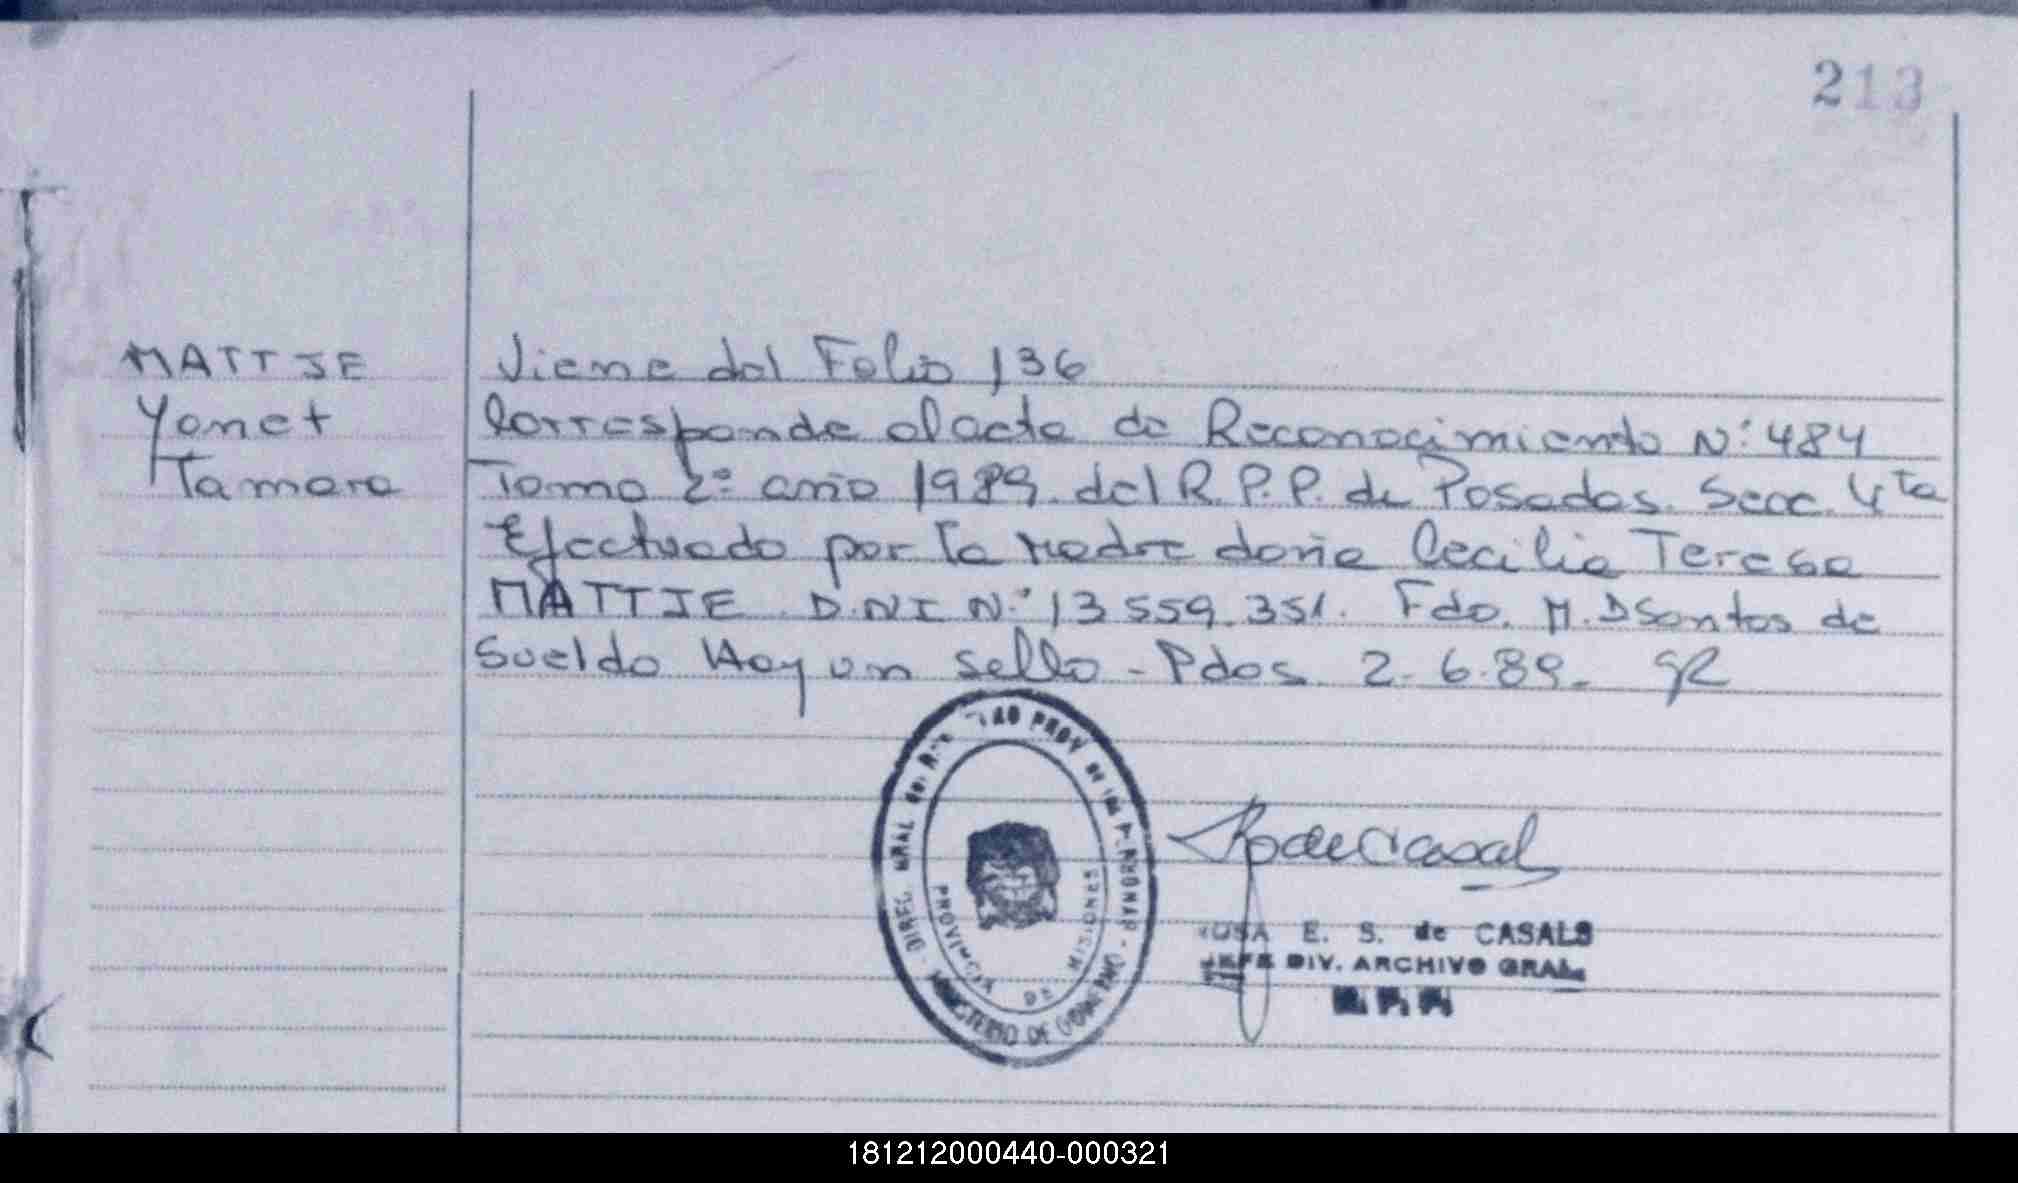 213
MATTJE
Yanet
Tamara
Viene del Folio 136
Corresponde al acta de Reconocimiento N: 484
Tomo 2: año 1989 del R.P.P. de Posadas. Secc. 4ta
Efectuado por la Madre doña Cecilia Teresa
MATTJE D.NI N: 13 559.351. Fdo. M. DSantos de
Sueldo Hay un sello - Pdos 2-6-89-
DIREC GRAL del PROV de las PERSONAS - MINISTERIO DE GOBIERNO
PROVINCIA DE MISIONES
R de Casal
E. S. de CASALS
JEFE DIV. ARCHIVO GRAL.
181212000440-000321